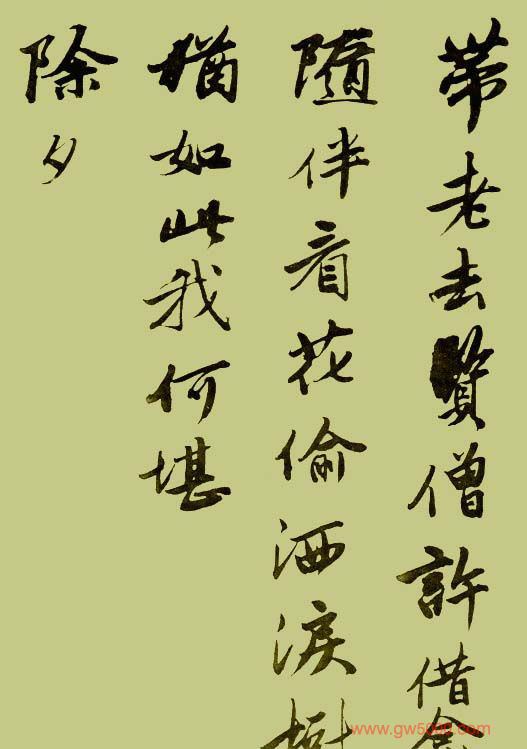 带老去贤僧许借龛
隨伴看花偷洒淚樹
猶如此我何堪
除夕
www.gw5000.com